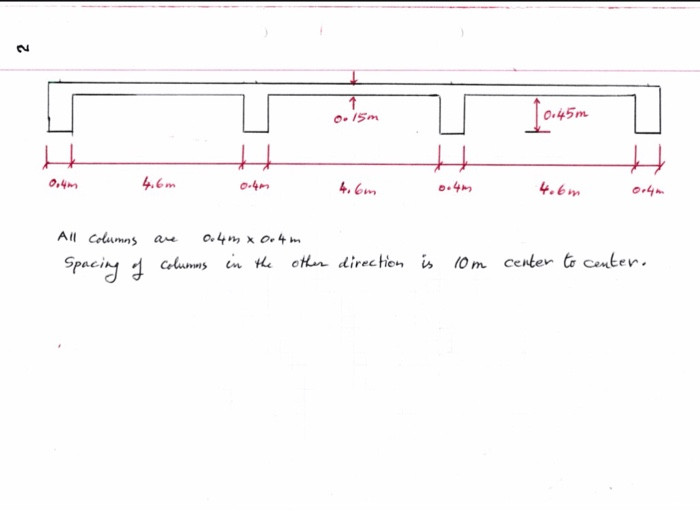 2
0.15m
0.45m
0.4m 4.6m 0.4m 4.6m 0.4m 4.6m 0.4m
All columns are 0.4m x 0.4m
Spacing of columns in the other direction is 10m center to center.